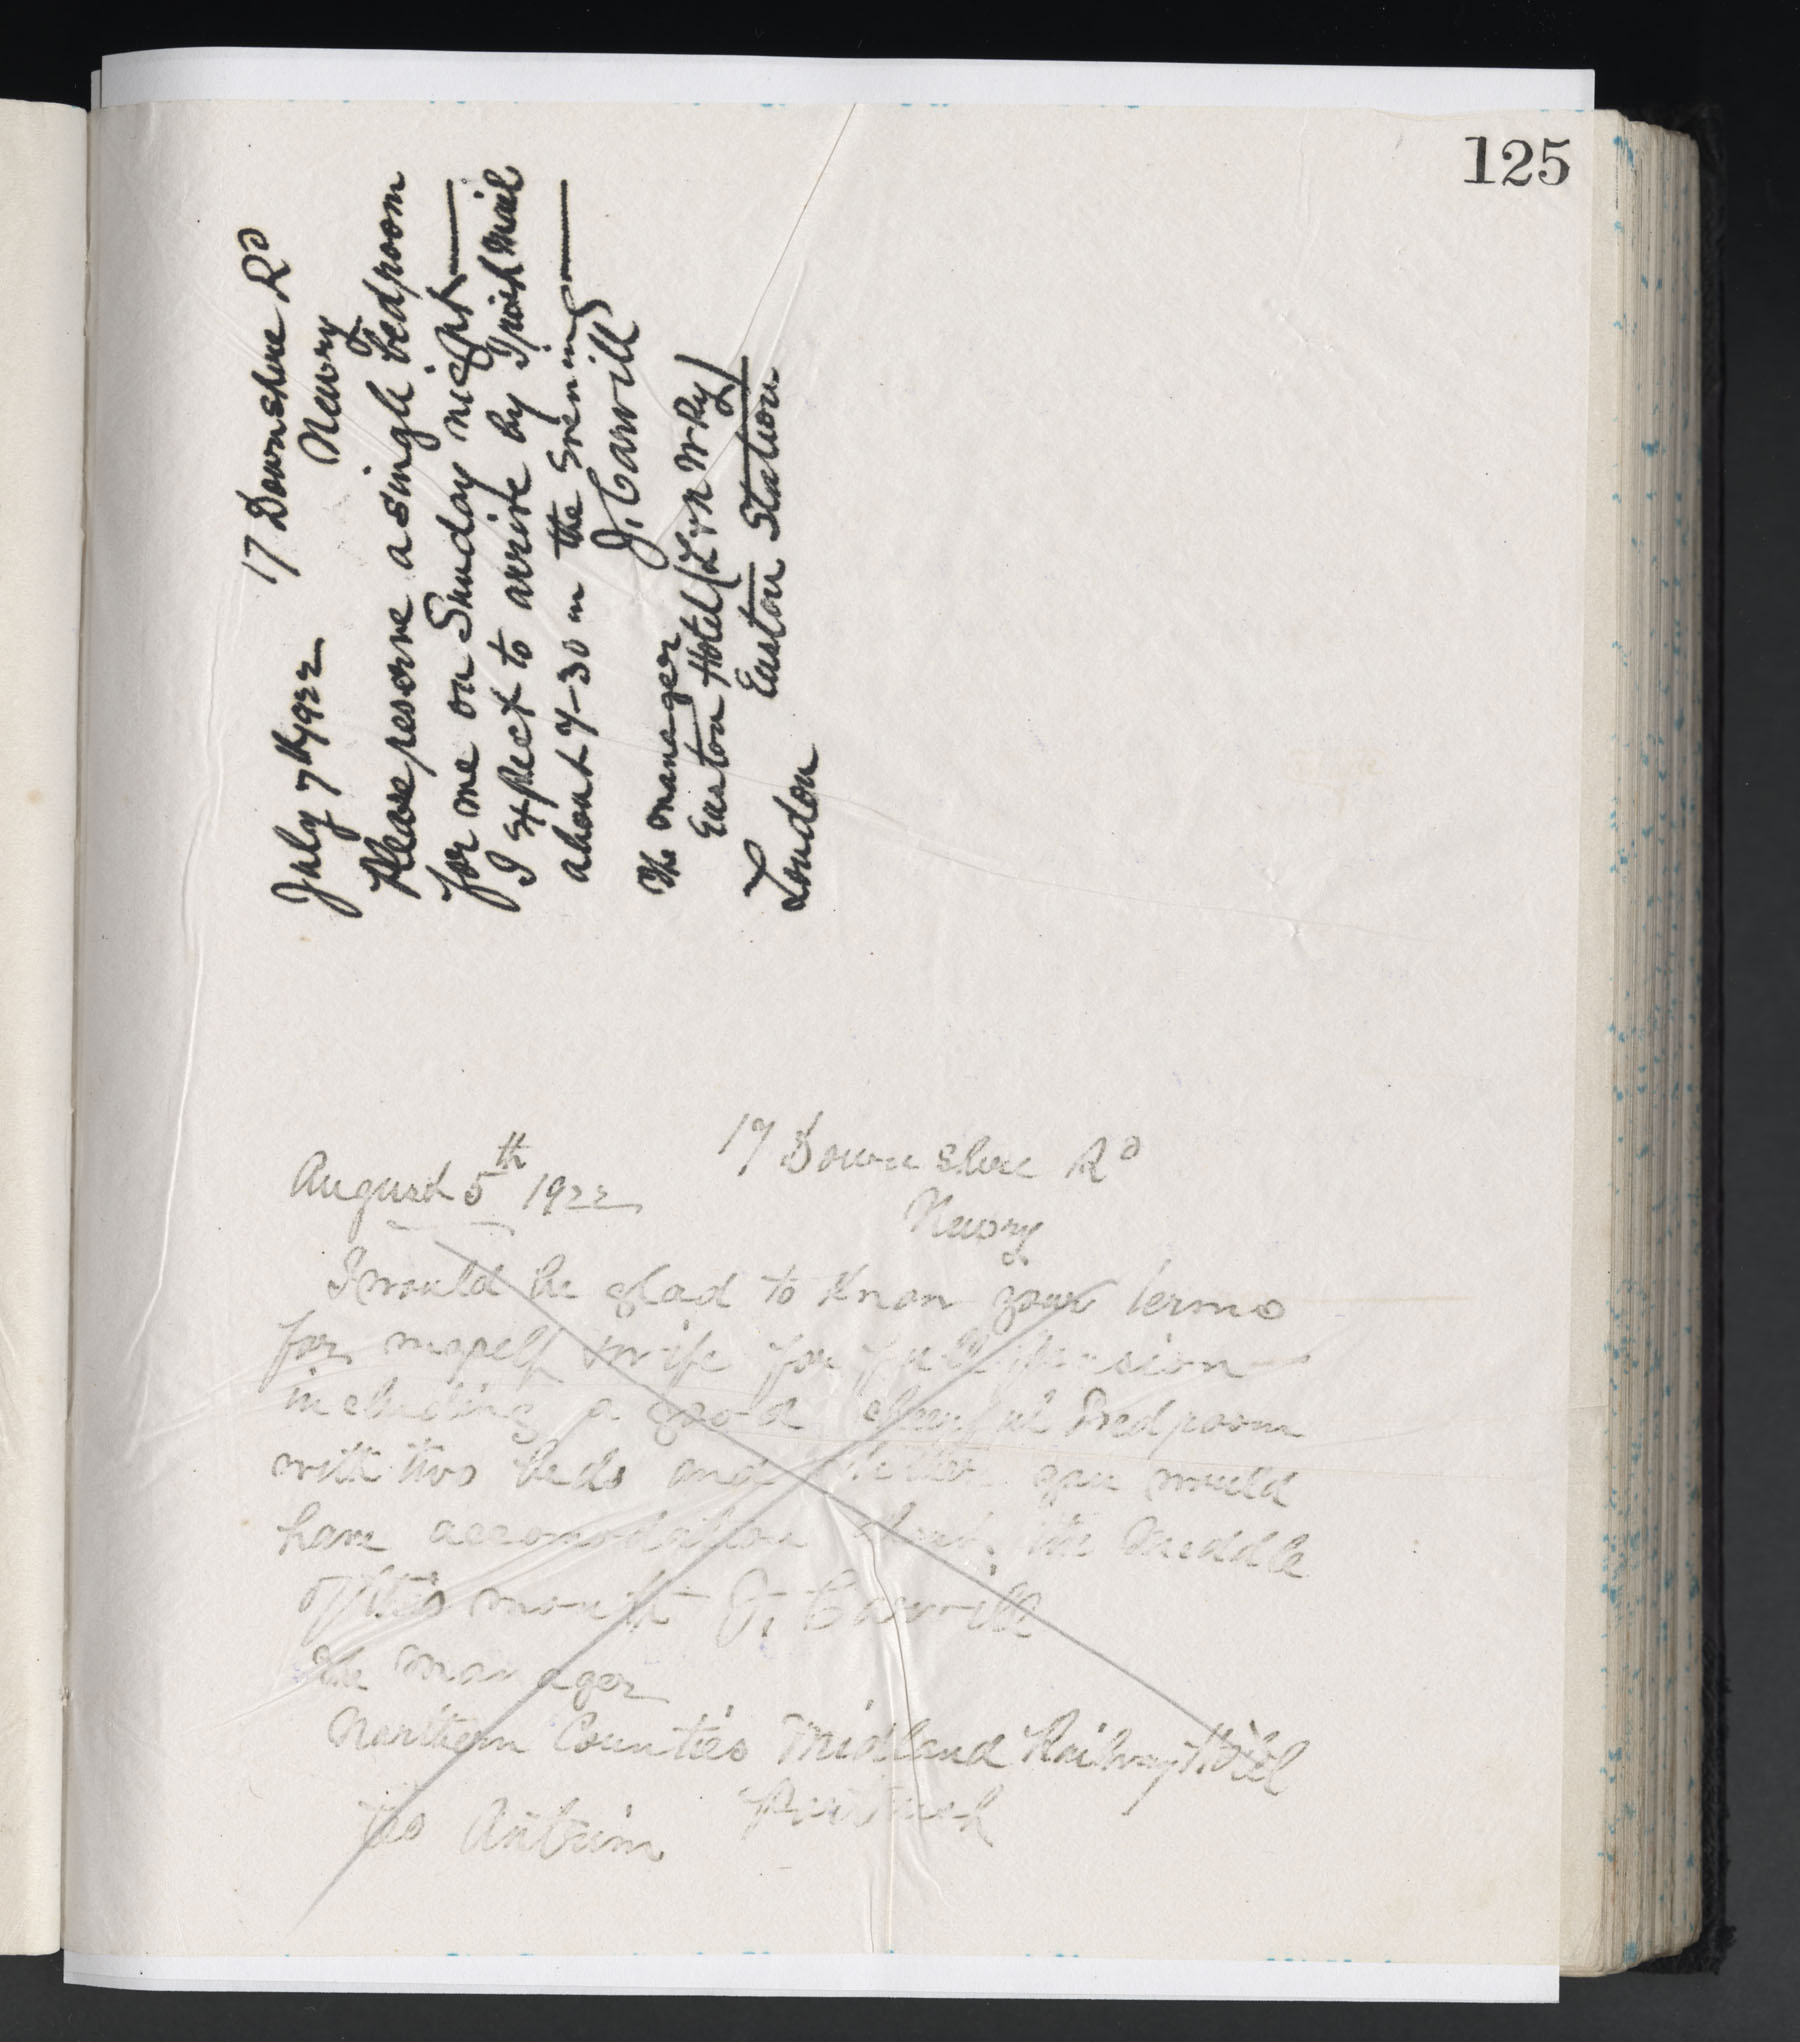 125
17 Downshire Rd
July 7th 1922
Newry
Please reserve a single bedroom
for me on Sunday night
I expect to arrive by Irish Mail
about 7-30 in the evening
J. Carvill
The Manager
Euston Hotel (L & N W Ry)
Euston Station
London
17 Downshire Rd
August 5th 1922
Newry
I would be glad to know your terms
for myself & wife for full pension
including a good cheerful Bedroom
with two beds and whether you would
have accomodation about the Middle
of this month J. Carvill
The Manager
Northern Counties Midland Railway Hotel
Portrush
Co Antrim